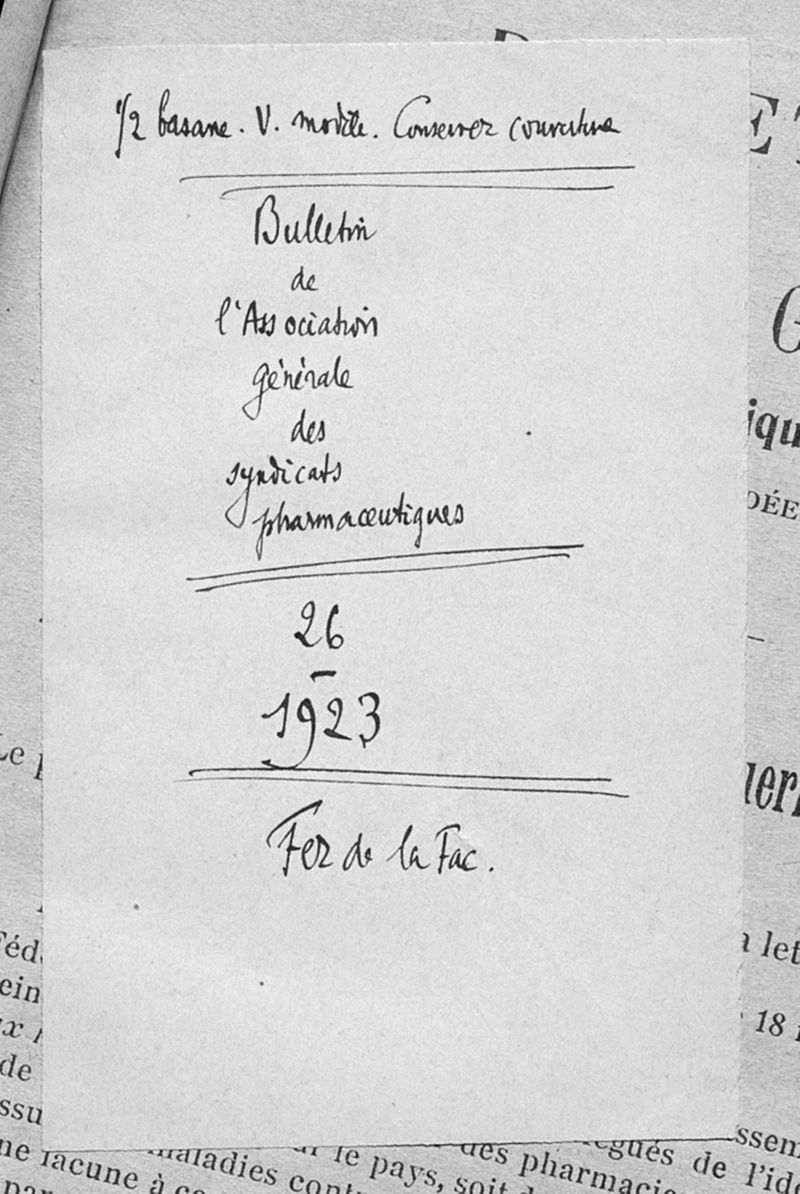 1/2 basane. V. modèle. Conserver couverture
Bulletin
de
l'Association
générale
des
syndicats
pharmaceutiques
26
1923
Fer de la Fac.
ET
G
iqu
DÉE
Le p
uerr
Féd
ein
a let
ux
18
de
ssu
ssem
ne lacune à co
maladies cont
le pays, soit
des pharmacie
légués de l'idé
par